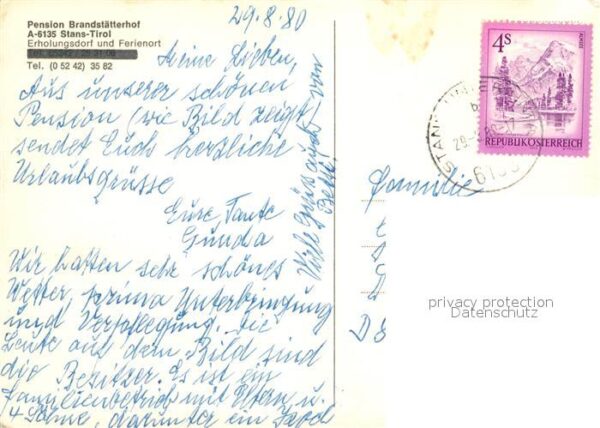 29.8.80
Pension Brandstätterhof
A-6135 Stans-Tirol
Erholungsdorf und Ferienort
Tel. (0 52 42) 35 82
Meine Lieben,
Aus unserer schönen
Pension (wie Bild zeigt
sendet Euch herzliche
Urlaubsgrüsse
Eure Tante
Gunda
Wir hatten sehr schönes
Wetter, prima Unterbringung
und Verpflegung. Die
Leute auf dem Bild sind
die Besitzer. Es ist ein
Familienbetrieb mit Eltern u.
4 Söhne, darunter ein
Viele Grüsse auch von
4S
ALMSEE
REPUBLIK ÖSTERREICH
STANS
6135
Familie
D 8
privacy protection
Datenschutz